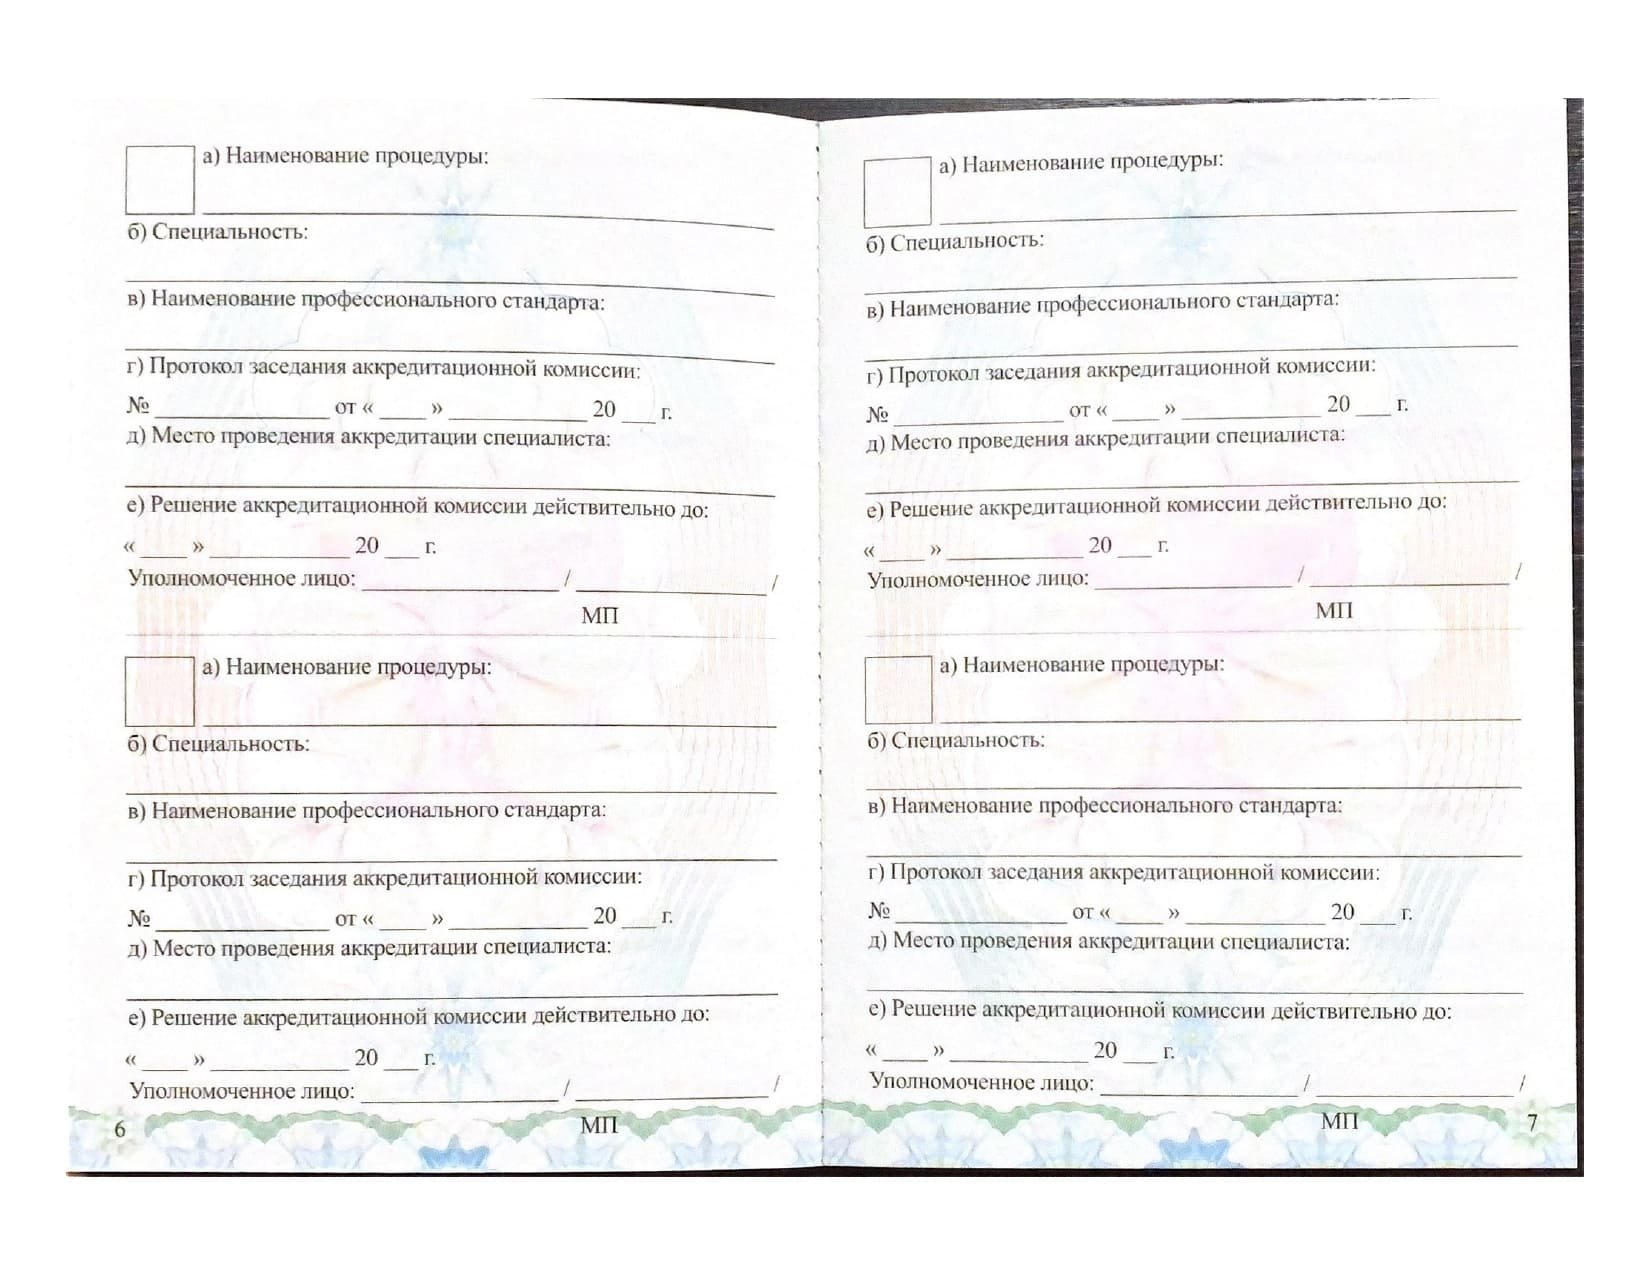 а) Наименование процедуры:
б) Специальность:
в) Наименование профессионального стандарта:
г) Протокол заседания аккредитационной комиссии:
№ ______________ от « ____ » ____________ 20 ___ г.
д) Место проведения аккредитации специалиста:
е) Решение аккредитационной комиссии действительно до:
« ____ » ____________ 20 ___ г.
Уполномоченное лицо: _________________ / _________________ /
МП
а) Наименование процедуры:
б) Специальность:
в) Наименование профессионального стандарта:
г) Протокол заседания аккредитационной комиссии:
№ ______________ от « ____ » ____________ 20 ___ г.
д) Место проведения аккредитации специалиста:
е) Решение аккредитационной комиссии действительно до:
« ____ » ____________ 20 ___ г.
Уполномоченное лицо: _________________ / _________________ /
МП
6
а) Наименование процедуры:
б) Специальность:
в) Наименование профессионального стандарта:
г) Протокол заседания аккредитационной комиссии:
№ ______________ от « ____ » ____________ 20 ___ г.
д) Место проведения аккредитации специалиста:
е) Решение аккредитационной комиссии действительно до:
« ____ » ____________ 20 ___ г.
Уполномоченное лицо: _________________ / _________________ /
МП
а) Наименование процедуры:
б) Специальность:
в) Наименование профессионального стандарта:
г) Протокол заседания аккредитационной комиссии:
№ ______________ от « ____ » ____________ 20 ___ г.
д) Место проведения аккредитации специалиста:
е) Решение аккредитационной комиссии действительно до:
« ____ » ____________ 20 ___ г.
Уполномоченное лицо: _________________ / _________________ /
МП
7